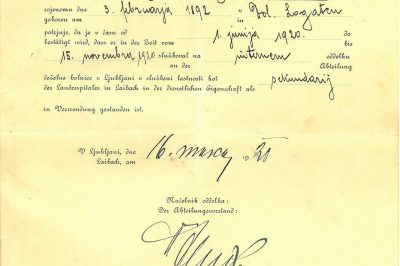 rojenemu dne 3. februarja 1892 v Dol. Logatcu
geboren am
potrjuje, da je v času od 1. junija 1920. do
bestätigt wird, dass er in der Zeit vom bis
15. novembra 1920 služboval na internem oddelku
an der Abteilung
deželne bolnice v Ljubljani v službeni lastnosti kot sekundarij
des Landesspitales in Laibach in der dienstlichen Eigenschaft als
in Verwendung gestanden ist.
V Ljubljani, dne
Laibach, am 16. marca 19
Načelnik oddelka:
Der Abteilungsvorstand: